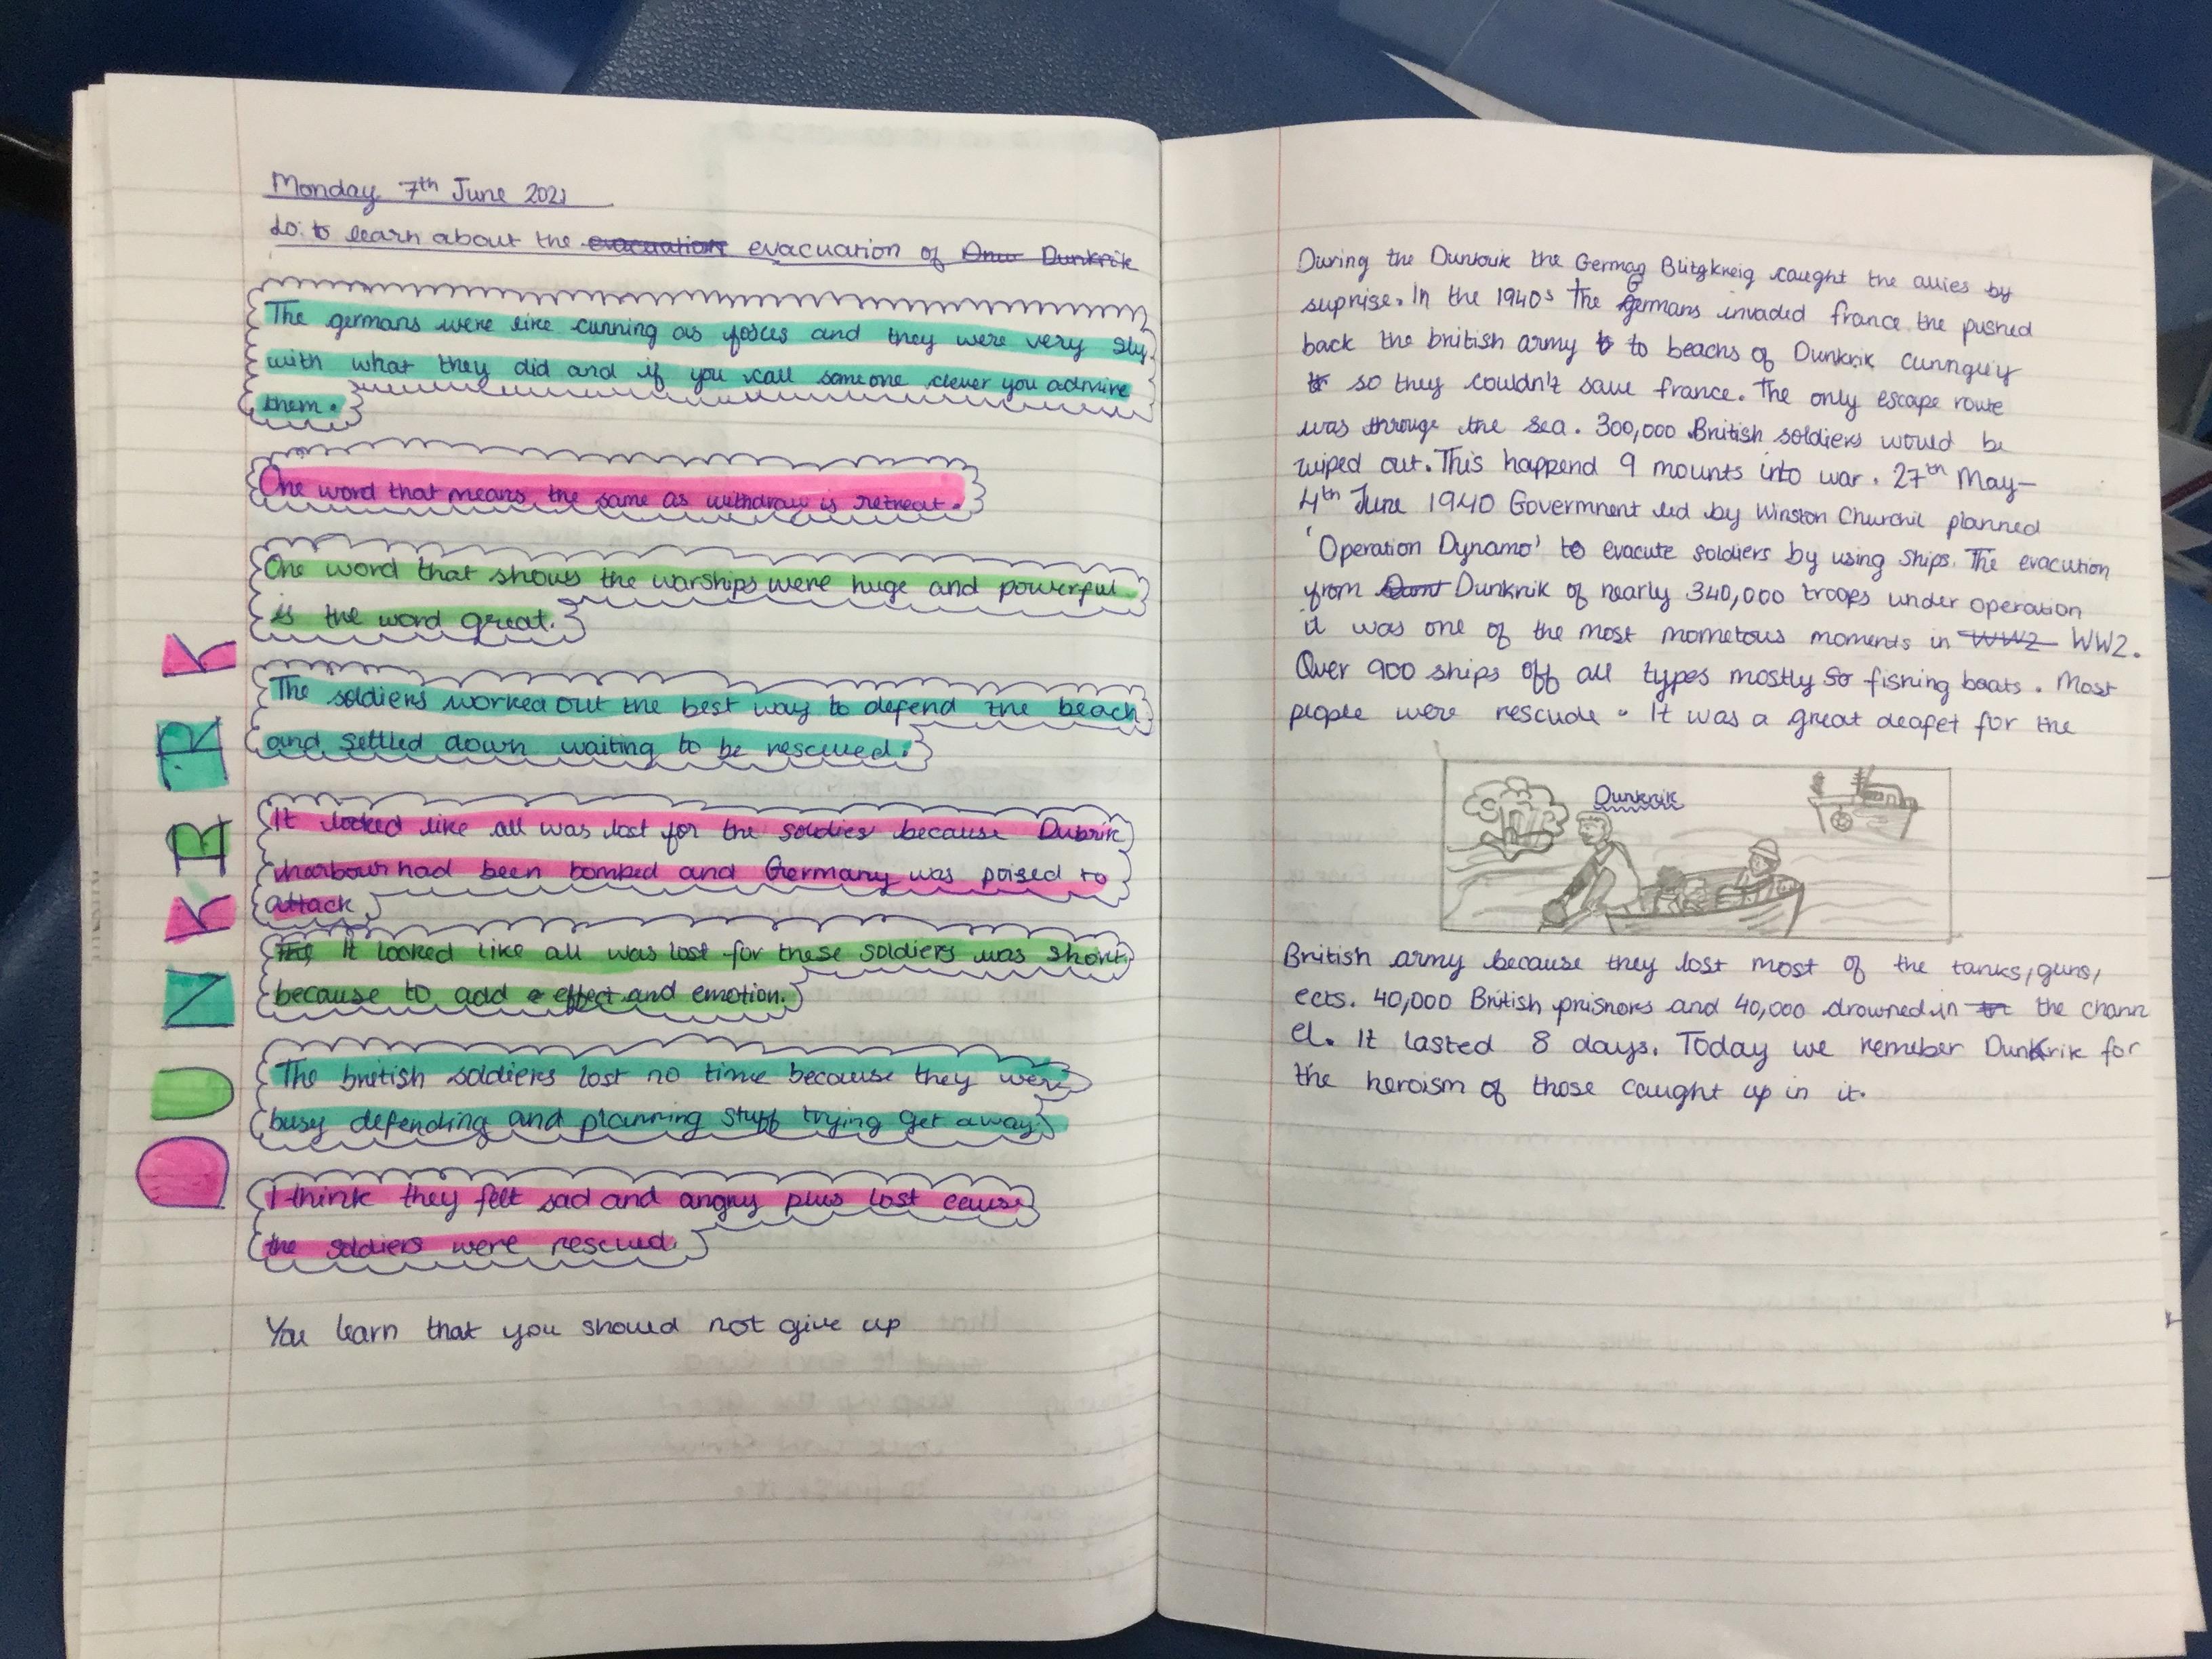 Monday 7th June 2021
Lo: to learn about the evacuation evacuation of Dunkrik
The germans were like cunning as foxes and they were very sly
with what they did and if you call someone clever you admire
them.
One word that means the same as withdraw is retreat.
One word that shows the warships were huge and powerful
is the word great.
The soldiers worked out the best way to defend the beach
and settled down waiting to be rescued.
It looked like all was lost for the soldies because Dubrik
harbour had been bombed and Germany was poised to
attack
The It looked like all was lost for these soldiers was short
because to add e effect and emotion.
The british soldiers lost no time because they were
busy defending and planning stuff trying get away.
I think they felt sad and angry plus lost cause
the soldiers were rescued.
You learn that you should not give up
DUNKRIK
During the Dunkrik the German Blitzkreig caught the allies by
suprise. In the 1940s the Germans invaded france the pushed
back the british army to beachs of Dunkrik
so they couldn't save france. The only escape route
was througe the sea. 300,000 British soldiers would be
wiped out. This happend 9 mounts into war. 27th May-
4th June 1940 Govermnent led by Winston Churchil planned
'Operation Dynamo' to evacute soldiers by using ships. The evacution
from Dunkrik of nearly 340,000 troops under operation
it was one of the most mometous moments in WW2 WW2.
Over 900 ships off all types mostly so fishing boats. Most
plople were rescude. It was a great deafet for the
Dunkrik
British army because they lost most of the tanks, guns,
ects. 40,000 British prisnors and 40,000 drowned in the chann
el. It lasted 8 days. Today we remeber Dunkrik for
the heroism of those caught up in it.